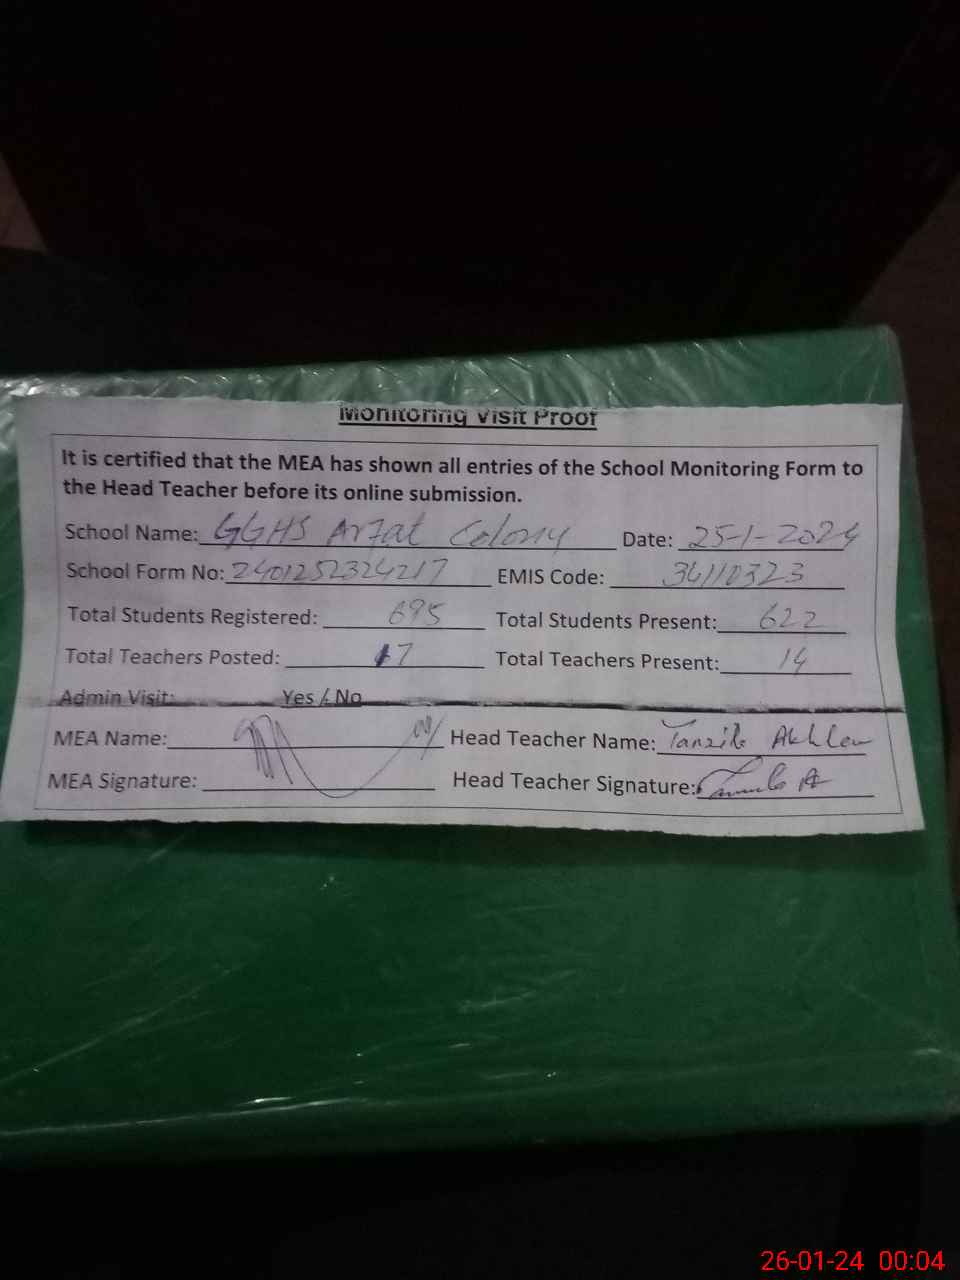 Monitoring Visit Proof
It is certified that the MEA has shown all entries of the School Monitoring Form to
the Head Teacher before its online submission.
School Name: GGHS Arfat Colony Date: 25-1-2024
School Form No: 2401252324217 EMIS Code: 36110323
Total Students Registered: 695 Total Students Present: 622
Total Teachers Posted: 17 Total Teachers Present: 14
Admin Visit: Yes / No
MEA Name: Head Teacher Name: Tanzila
MEA Signature: Head Teacher Signature:
26-01-24 00:04